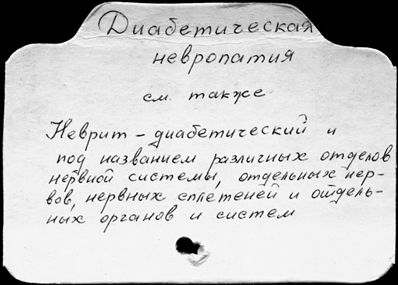 Диабетическая
невропатия
см. также
Неврит – диабетический и
под названием различных отделов
нервной системы, отдельных нер-
вов, нервных сплетений и отдель-
ных органов и систем